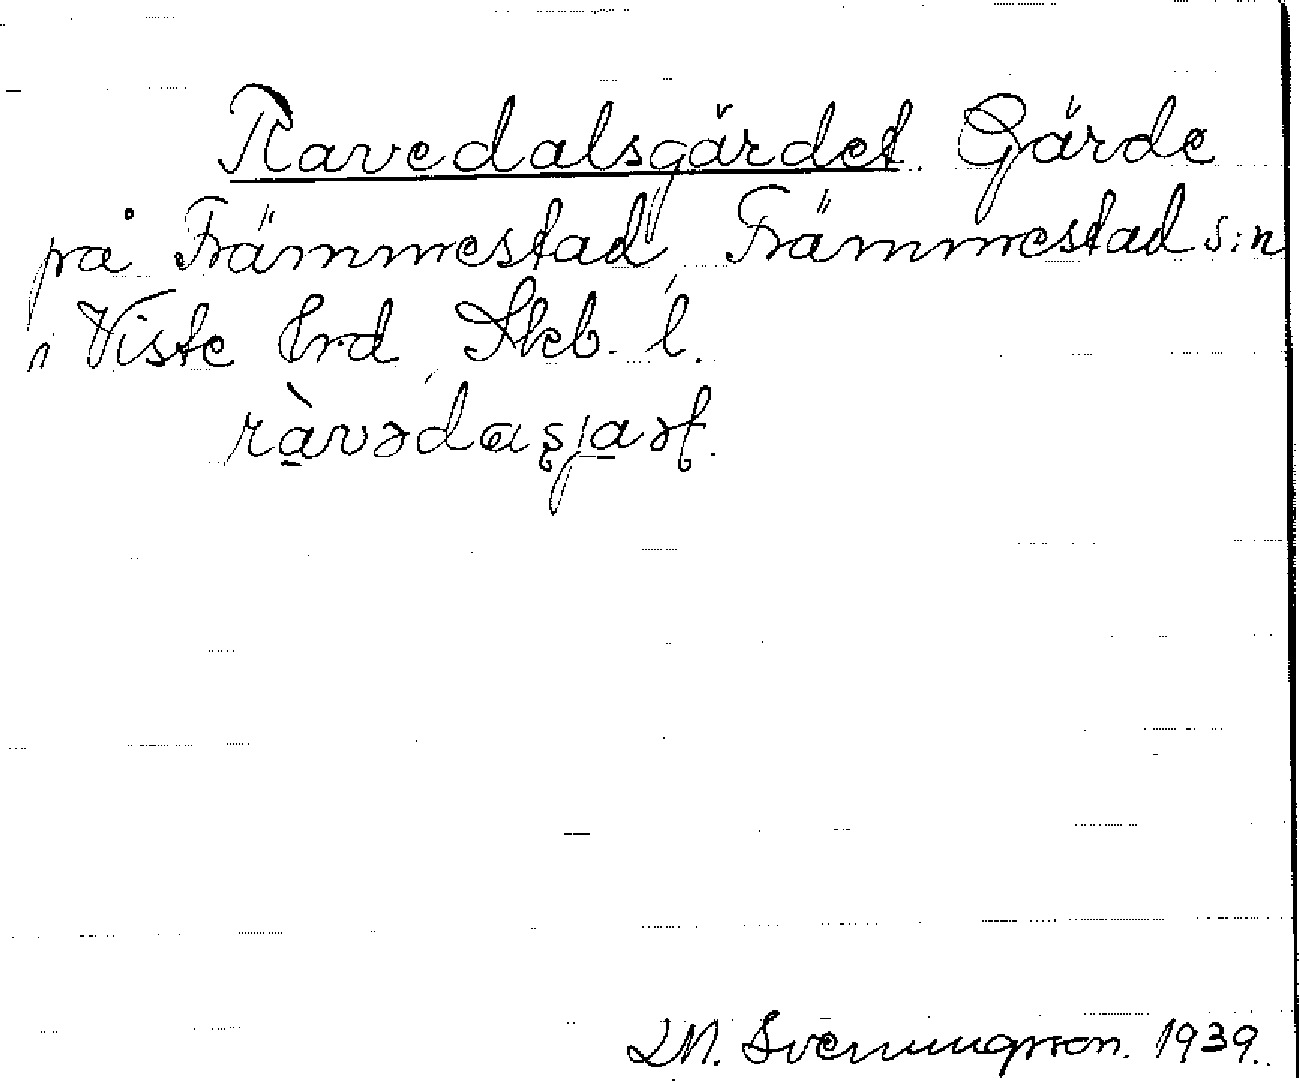 Ravedalsgärdet. Gärde
på Främmestad, Främmestad s:n
i Viste hrd, Skb. l.
ràvədaʂjaəʈ.
M. Svenningsson. 1939.